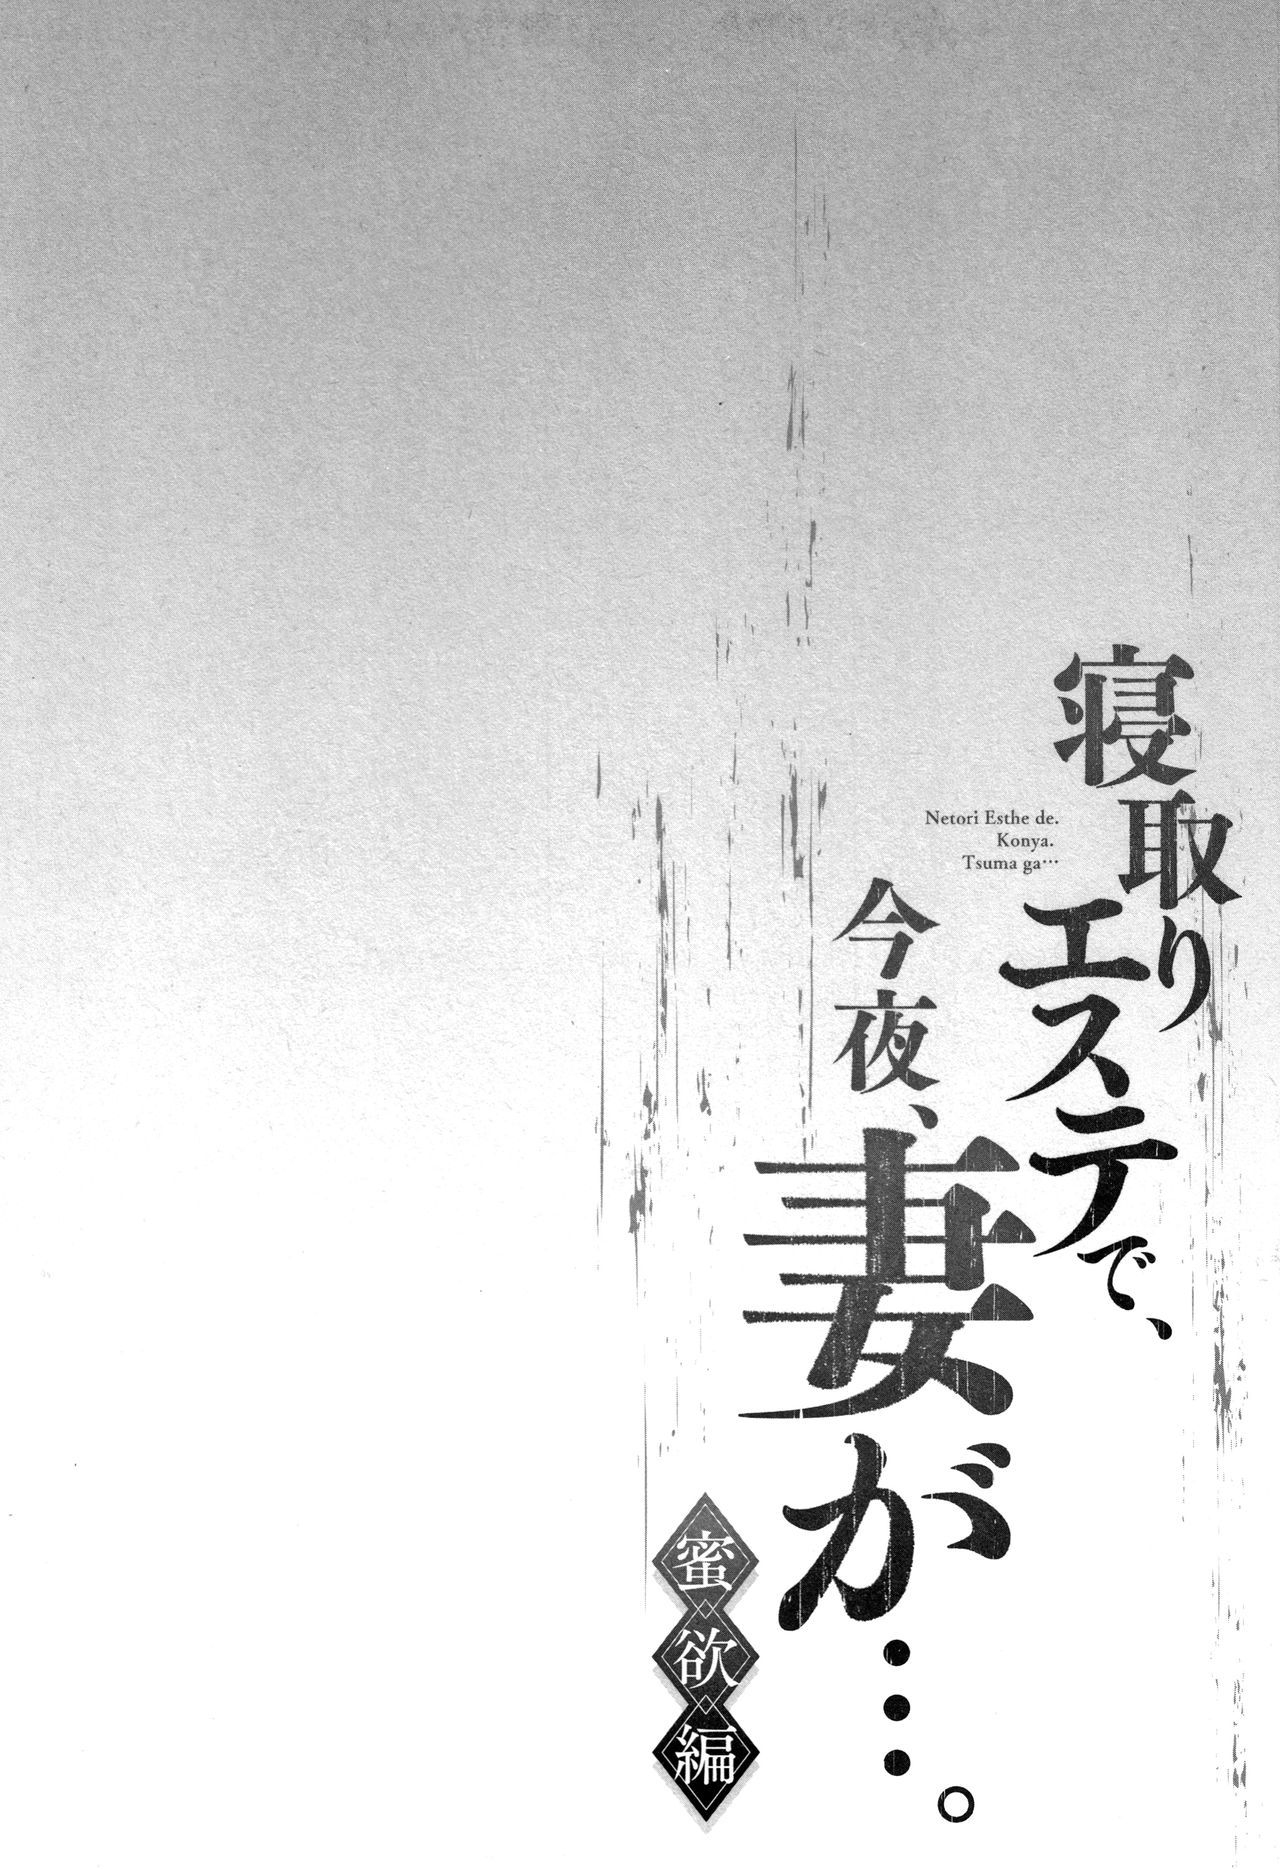 寝取り
エステで、
Netori Esthe de.
Konya.
Tsuma ga…
今夜、
妻が…。
蜜欲編